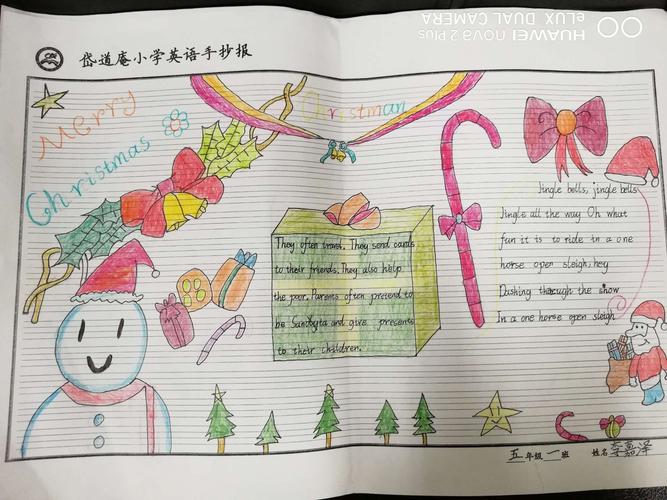 HUAWEI nova 2 Plus
eLUX DUAL CAMERA
岱道庵小学英语手抄报
Merry
Christmas
Christman
They often travel. They send cards
to their friends. They also help
the poor. Parents often pretend to
be and give presents
to their children.
Jingle bells, jingle bells
Jingle all the way Oh what
fun it is to ride in a one
horse open sleigh, hey
Dashing through the snow
In a one horse open sleigh
五年级一班 姓名 李嘉泽